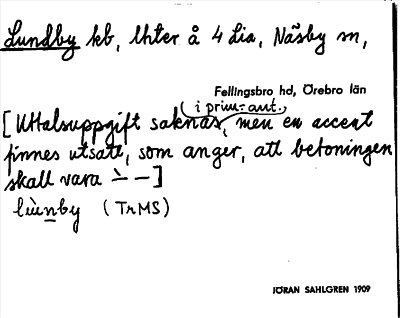 Lundby kb, Uhter å 4 Lia, Näsby sn,
Fellingsbro hd, Örebro län
i prim-ant.,
[Uttalsuppgift saknas, men en accent
finnes utsatt, som anger, att betoningen
skall vara `- –]
lùnby (TrMS)
JÖRAN SAHLGREN 1909